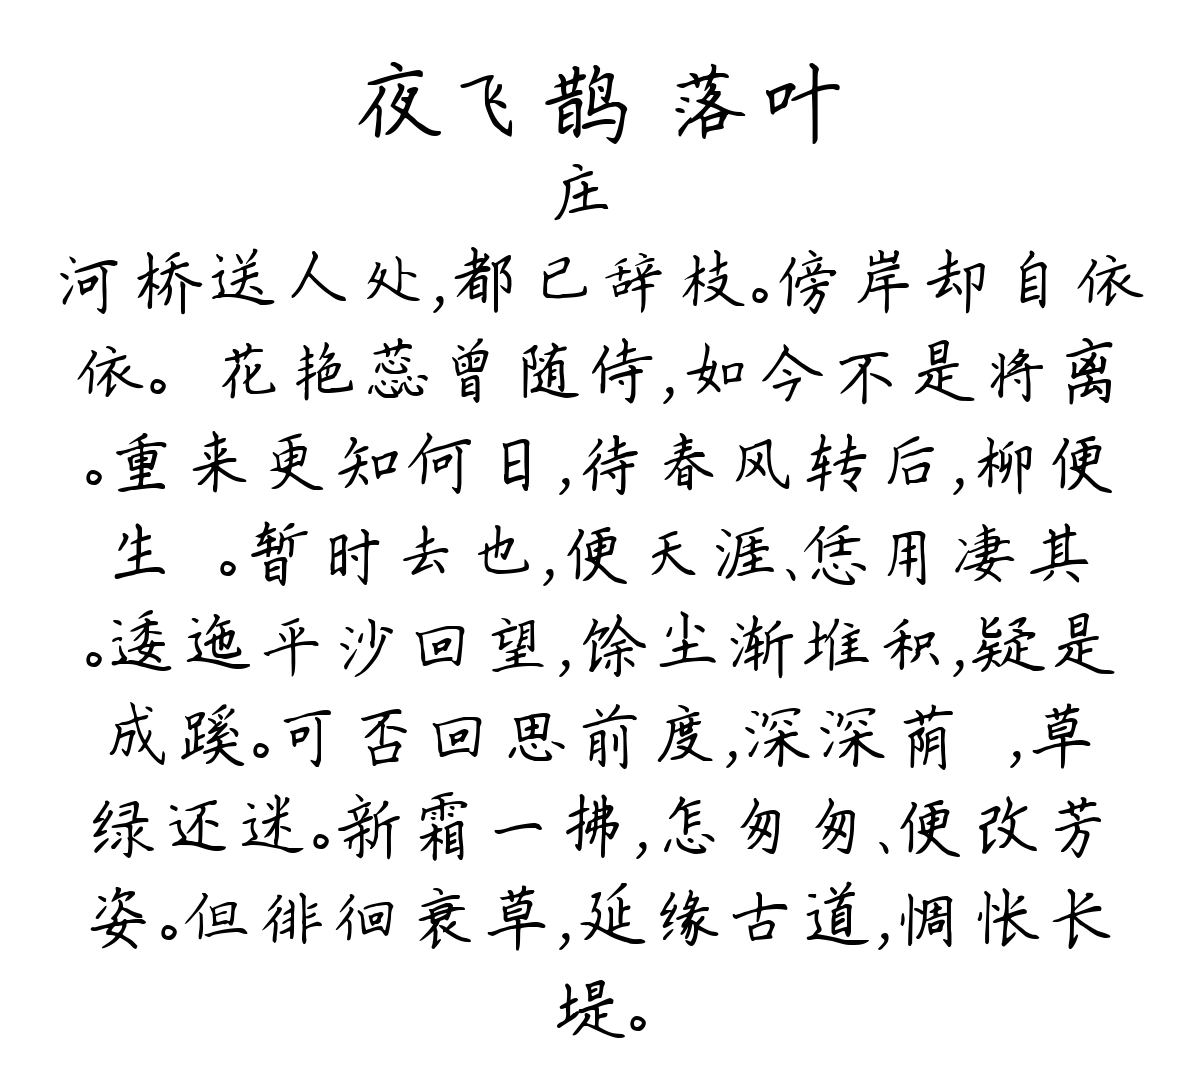 夜飞鹊 落叶
庄
河桥送人处,都已辞枝。傍岸却自依
依。 花艳蕊曾随侍,如今不是将离
。重来更知何日,待春风转后,柳便
生 。暂时去也,便天涯、恁用凄其
。逶迤平沙回望,馀尘渐堆积,疑是
成蹊。可否回思前度,深深荫 ,草
绿还迷。新霜一拂,怎匆匆、便改芳
姿。但徘徊衰草,延缘古道,惆怅长
堤。